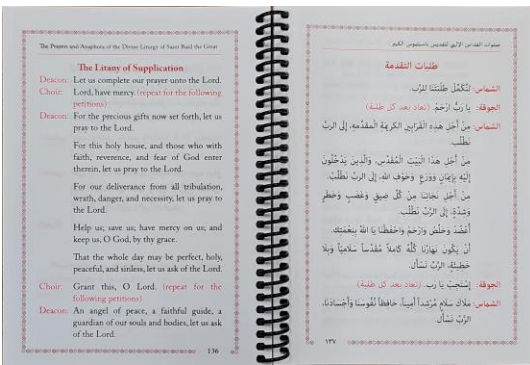 The Prayers and Anaphora of the Divine Liturgy of Saint Basil the Great
The Litany of Supplication
Deacon: Let us complete our prayer unto the Lord.
Choir: Lord, have mercy. (repeat for the following
petitions)
Deacon: For the precious gifts now set forth, let us
pray to the Lord.
For this holy house, and those who with
faith, reverence, and fear of God enter
therein, let us pray to the Lord.
For our deliverance from all tribulation,
wrath, danger, and necessity, let us pray to
the Lord.
Help us; save us; have mercy on us; and
keep us, O God, by thy grace.
That the whole day may be perfect, holy,
peaceful, and sinless, let us ask of the Lord.
Choir: Grant this, O Lord. (repeat for the
following petitions)
Deacon: An angel of peace, a faithful guide, a
guardian of our souls and bodies, let us ask
of the Lord.
136
صلوات القداس الإلهي للقديس باسيليوس الكبير
طلبات التقدمة
الشماس: لنُكَمِّلْ طَلِبَتَنا للرَّبّ.
الجوقة: يا رَبُّ ارْحَمْ. (تعاد بعد كل طلبة)
الشماس: مِنْ أَجْلِ هَذِهِ القَرابينِ الكَريمَةِ المُقَدَّمَةِ، إلى الرَّبِّ
نَطْلُب.
مِنْ أَجْلِ هَذا البَيْتِ المُقَدَّسِ، وَالَّذينَ يَدْخُلُونَ
إلَيْهِ بِإيمَانٍ وَوَرَعٍ وَخَوْفِ اللهِ، إلى الرَّبِّ نَطْلُبْ.
مِنْ أَجْلِ نَجاتِنا مِنْ كُلِّ ضِيقٍ وَغَضَبٍ وَخَطَرٍ
وَشِدَّةٍ، إلى الرَّبِّ نَطْلُب.
أُعْضُدْ وَخَلِّصْ وَارْحَمْ وَاحْفَظْنا يا اللهُ بِنِعْمَتِكَ.
أَنْ يَكُونَ نَهَارُنا كُلُّهُ كامِلاً مُقَدَّساً سَلامِيّاً وَبِلا
خَطيئَةٍ، الرَّبَّ نَسْأَل.
الجوقة: إسْتَجِبْ يا رَب. (تعاد بعد كل طلبة)
الشماس: مَلاكَ سَلامٍ مُرْشِداً أَميناً، حافِظاً نُفُوسَنا وَأَجْسادَنا،
الرَّبَّ نَسْأَل.
١٣٧